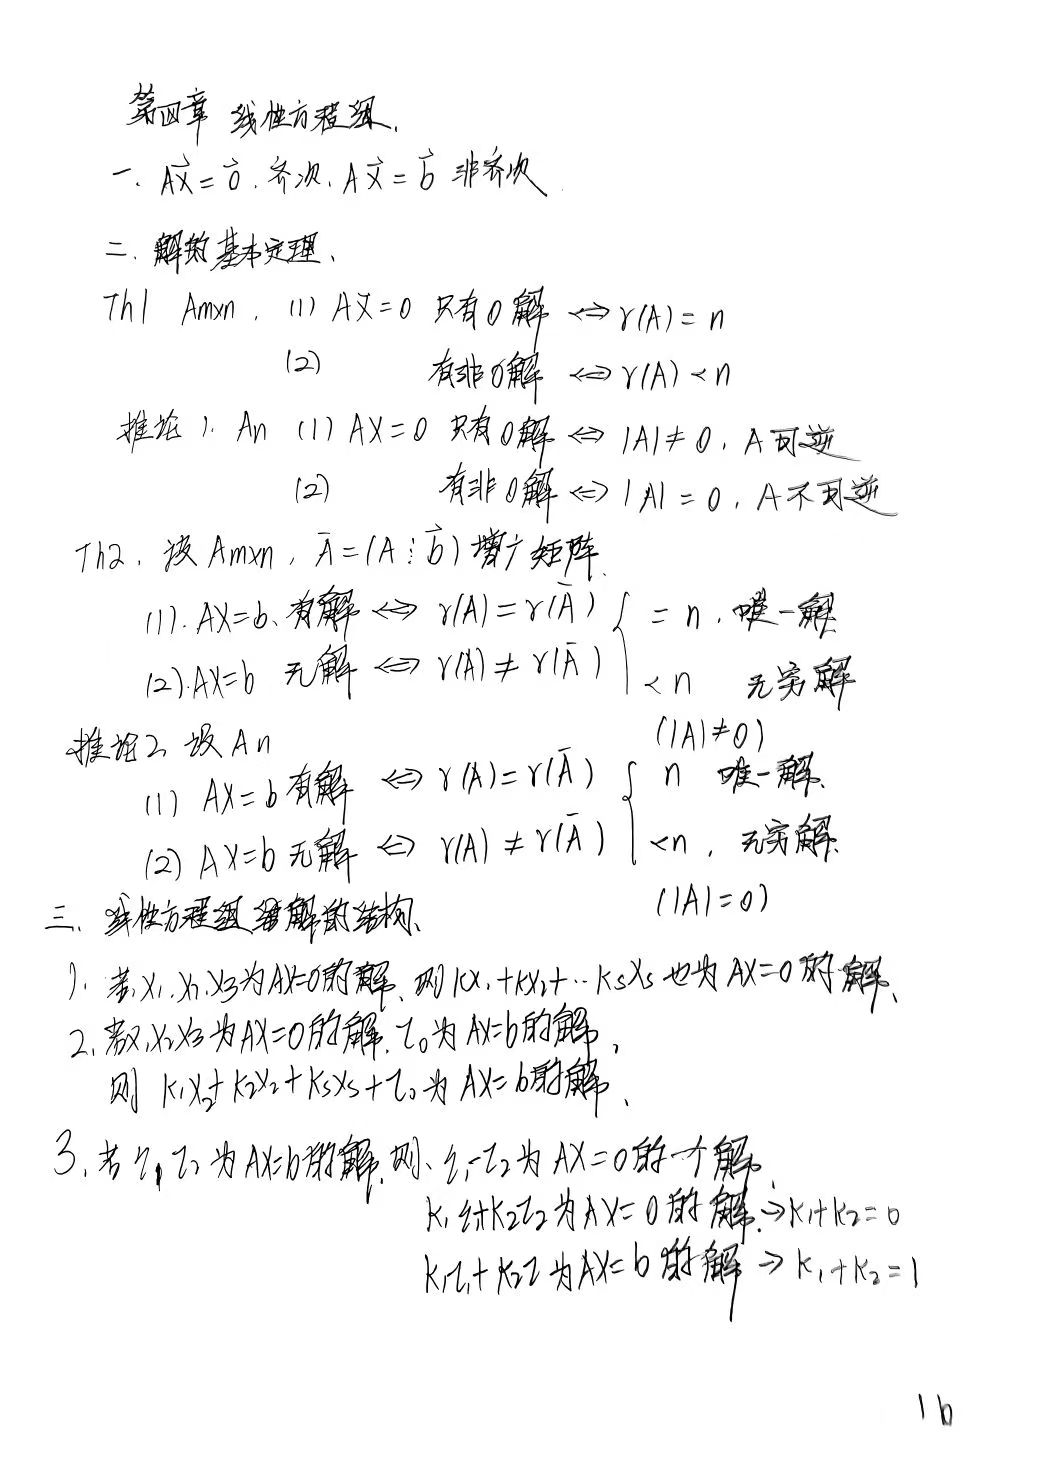 第四章 线性方程组.
一. AX⃗=0⃗. 齐次. AX⃗=b⃗ 非齐次.
二. 解的基本定理.
Th1 Amxn. (1) AX⃗=0 只有0解 <=> r(A)=n
(2) 有非0解 <=> r(A)<n
推论1. An (1) AX=0 只有0解 <=> |A|≠0. A可逆
(2) 有非0解 <=> |A|=0. A不可逆
Th2. 设Amxn, Ā=(A⋮b⃗) 增广矩阵.
(1). AX=b. 有解 <=> r(A)=r(Ā) { =n. 唯一解
(2). AX=b 无解 <=> r(A)≠r(Ā) <n 无穷解
(|A|≠0)
推论2. 设An
(1) AX=b有解 <=> r(A)=r(Ā) { n 唯一解.
(2) AX=b无解 <=> r(A)≠r(Ā) <n, 无穷解.
(|A|=0)
三. 线性方程组 解的结构.
1. 若X₁.X₂.X3为AX=0的解. 则KX₁+KX₂+··KsXs也为AX=0的解.
2. 若X₁X₂X3为AX=0的解. η₀为AX=b的解,
则 K₁X₂+K₂X₂+KsXs+η₀为AX=b的解.
3. 若η₁η₂为AX=b的解. 则. η₁-η₂为AX=0的一个解.
K₁η₁+K₂η₂为AX=0的解.⇒K₁+K₂=0
K₁η₁+K₂η为AX=b的解⇒K₁+K₂=1
16